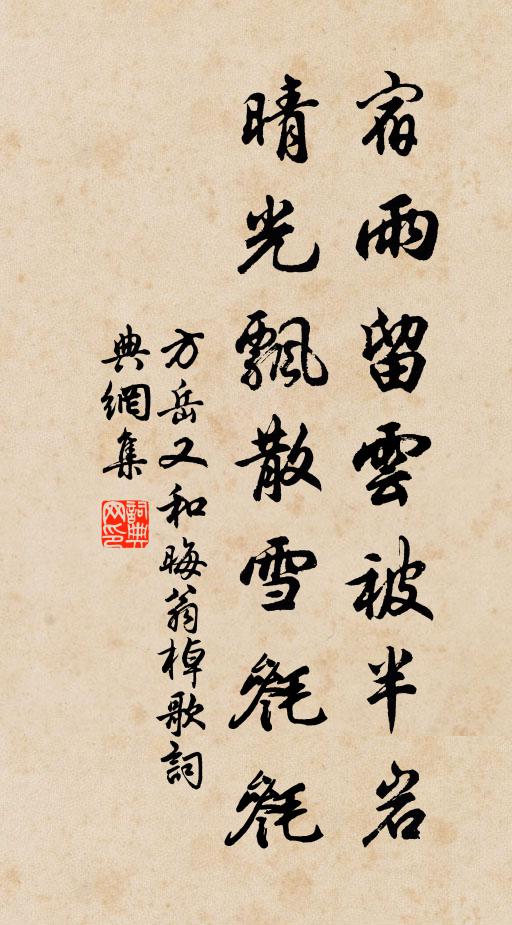 宿雨留雲被半岩
晴光飄散雪毿毿
方岳又和晦翁棹歌詞
典網集
詞典網印